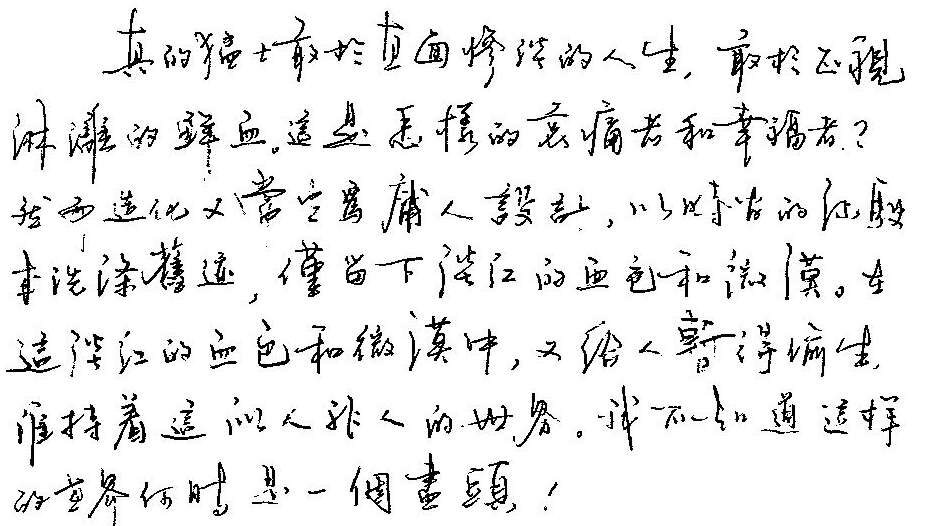 真的猛士敢於直面慘淡的人生，敢於正視
淋漓的鮮血。這是怎樣的哀痛者和幸福者？
然而造化又常常爲庸人設計，以時间的流駛
来洗滌舊迹，僅留下淡红的血色和微漠。在
這淡红的血色和微漠中，又给人暫得偷生，
維持着這似人非人的世界。我不知道這样
的世界何時是一個盡頭！